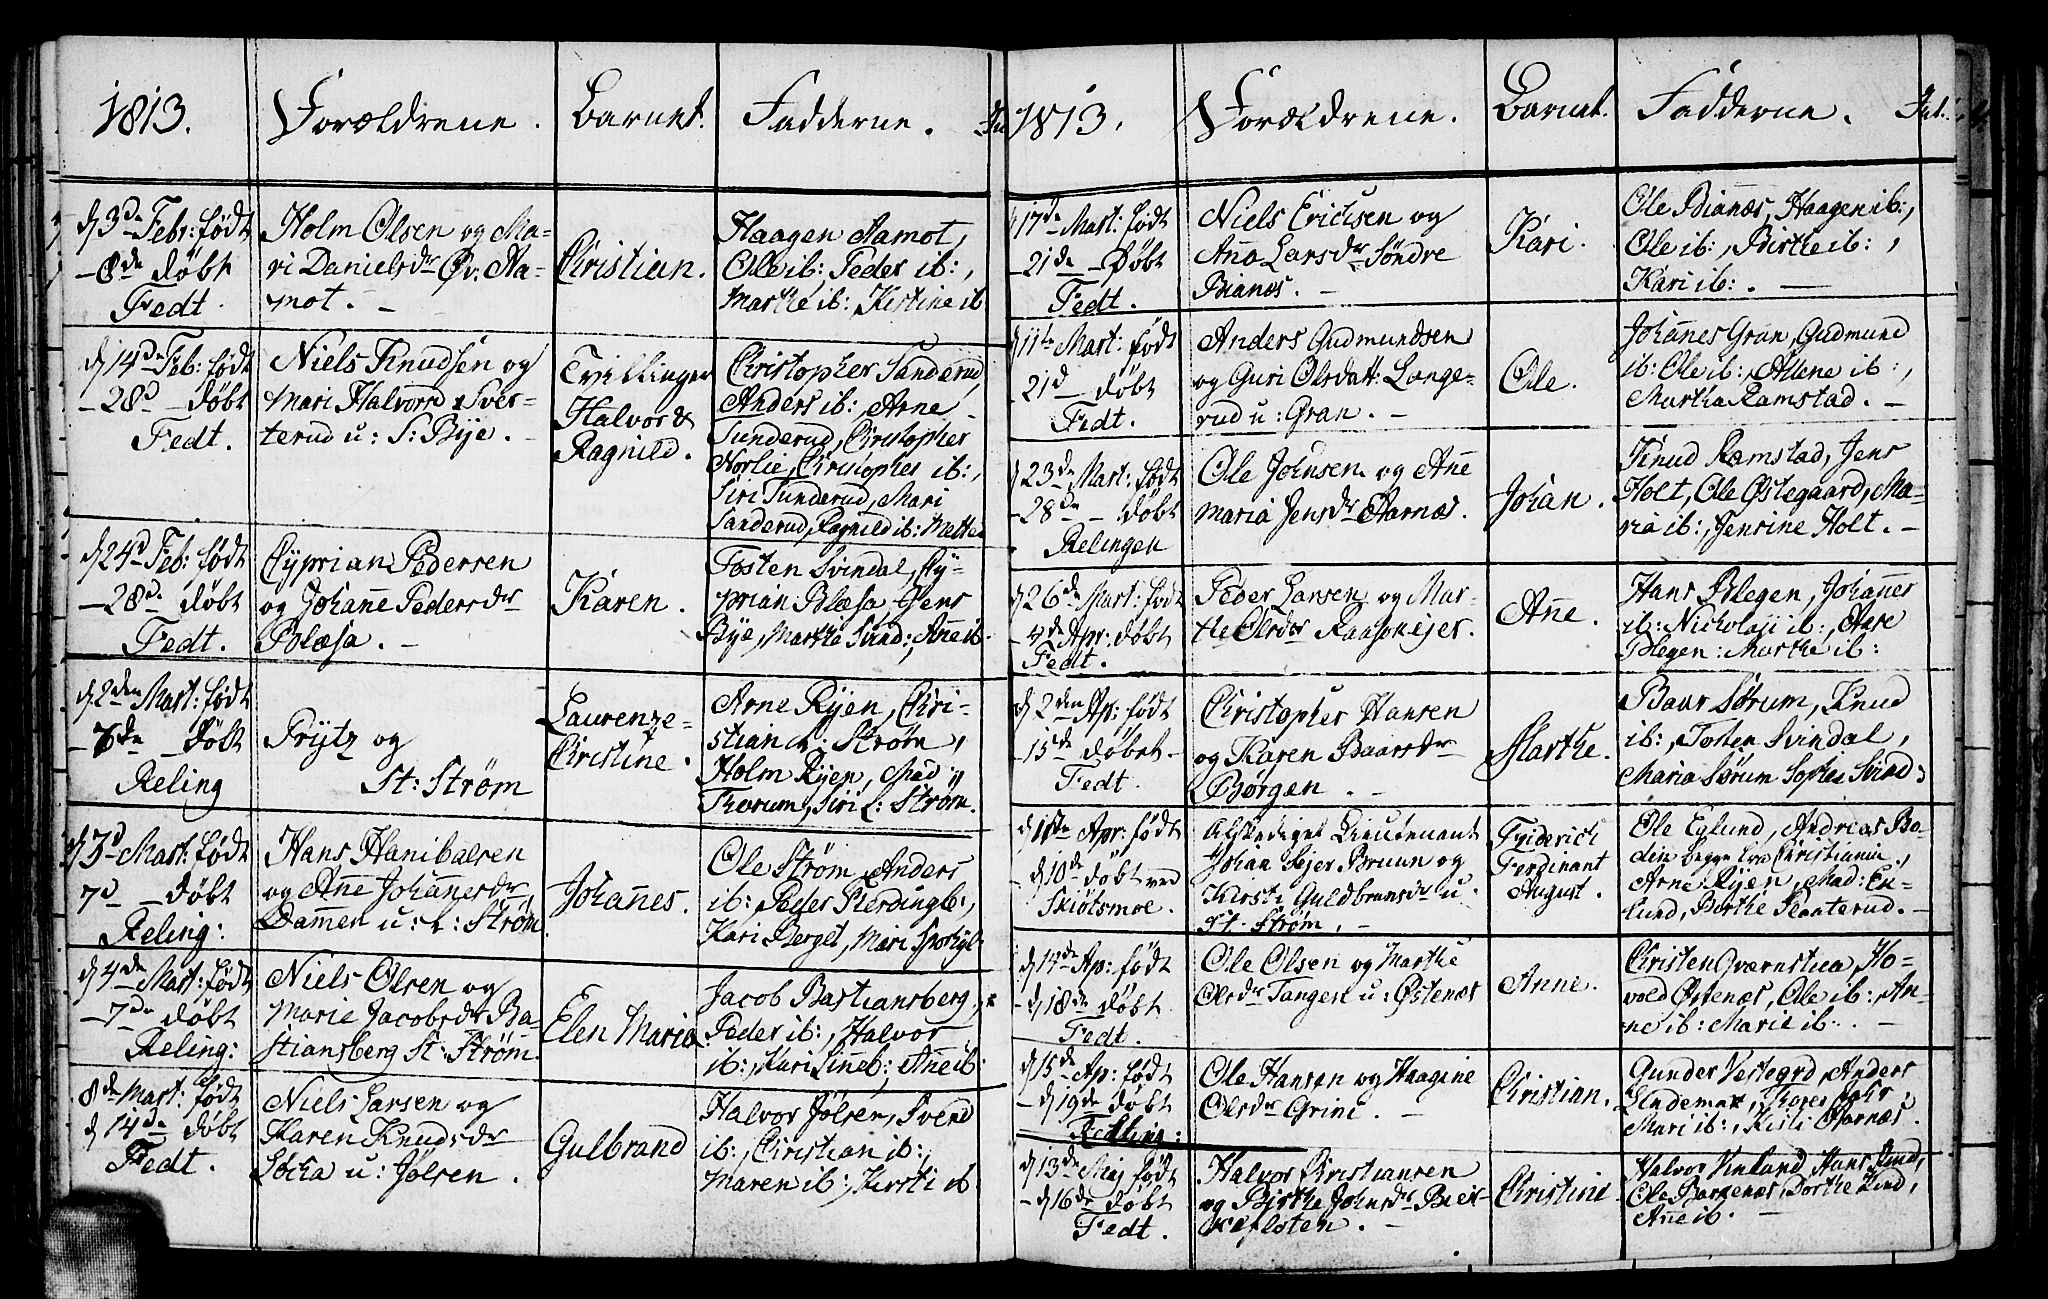 1813. Forældrene. Barnet. Fadderne.
d 3de Febr: født
– 8de døbt
Fedt.
Holm Olsen og Ma-
ri Danielsdr Øv. Aa-
mot. –
Christian.
Haagen Aamot,
Ole ib: Peder ib:,
Marthe ib: Kistine ib
d 14de Feb: født
– 28d – døbt
Fedt.
Niels Knudsen og
Mari Halvorsd Sver-
terud u: S: Bye. –
Tvillinger
Halvor &
Ragnild.
Christopher Sanderud
Anders ib:, Arne
Sunderud, Christopher
Norlie, Christopher ib:,
Siri Sunderud, Mari
Sanderud, Ragnild ib: Mette
d 24d Feb: født
– 28de døbt
Fedt.
Cyprian Pedersen
og Johane Pedersdr
Blæsa. –
Karen.
Tosten Svindal, Cy-
prian Blæsa, Jens
Bye, Marthe Svind:, Ane ib.
d 2den Mart: født
– 7de – Døbt
Reling
Prytz og
St: Strøm
Laurenze-
Christine.
Arne Ryen, Chri-
stian L: Strøm,
Holm Ryen, Mad:
Thorum, Siri L: Strøm.
d 3d Mart: født
7d – døbt
Reling:
Hans Hanibalsen
og Ane Johanesdr
Damen u: L: Strøm
Johanes.
Ole Strøm, Anders
ib:, Peder Pierdingb:,
Kari Berget, Mari
d 4de Mart: født
– 7de døbt
Reling:
Niels Olsen og
Marie Jacobsdr Ba-
stiansberg St: Strøm.
Elen Maria.
Jacob Bastiansberg,
Peder ib:, Halvor
ib:, Kari Sineb:, Ane ib:
8de Mart: født
d 14de døbt
Fedt.
Niels Larsen og
Karen Knudsdr
Socka u: Jølsen.
Gulbrand
Halvor Jølsen, Svend
ib:, Christian ib:,
Maren ib:, Kirsti ib
1813. Forældrene. Barnet. Fadderne.
d 17de Mart: født
– 21de – Døbt
Fedt.
Niels Erichsen og
Ana Larsdr Søndre
Bianes. –
Kari.
Ole Bianæs, Haagen ib:,
Ole ib:, Birthe ib:,
Kari ib:. –
d 11te Mart: født
21d – døbt
Fedt.
Anders Gudmundsen
og Guri Olsdatt: Lange-
rud u: Gran. –
Ole.
Johanes Gran, Gudmund
ib: Ole ib:, Allene ib:,
Martha Ramstad. –
d 23de Mart: født
– 28de – døbt
Relingen
Ole Johnsen og Ane
Maria Jensdr Aarnæs.
Johan.
Knud Ramstad, Jens
Holt, Ole Østegaard, Ma-
ria ib:, Jensine Holt. –
d 26de Mart: født
– 4de Apr: døbt
Fedt.
Peder Larsen og Mar-
the Olsdr Raasokejer.
Ane.
Hans Blegen, Johanes
ib: Nickolaii ib:, Aase
Blegen: Marthe ib:
d 2den Ap: født
– 15de døbet –
Fedt.
Christopher Hansen
og Karen Baarsdr
Børgæn. –
Marthe.
Baar Sørum, Knud
ib:, Tosten Svindal,
Maria Sørum Sophie Svind:
d 1ste Apr: født
– d 10de døbt ved
Skiøtsmoe.
Afskediget Lieutenant
Johan Sejer Bruun og
Kirsti Guldbransdr u:
St. Strøm. –
Friderich
Ferdinant
August.
Ole Eglund, Andreas Bo-
din begge fra Christiania,
Arne Ryen, Mad: En-
lund, Berthe Planterud. –
d 14de Ap: født
– d 18de døbt
Fedt.
Ole Olsen og Marthe
Olsdr Tangen u: Østenæs
Anne.
Christen Qværnstua, Ho-
vold Østenæs, Ole ib:, An-
ne ib: Marie ib:. –
d 15de Ap: født
– d 19de døbt
Reling:
Ole Hansen og Haagine
Olsdr Grini. –
Christian.
Gunder Vestegrd, Anders
Lindemar,
Mari ib:, Kisti Aarnæs.
d 13de Maj født
– d 16de døbt
Fedt.
Halvor Christiansen
og Birthe Johnsdr Beit-
keflsten. –
Christine
Halvor Vinlund, Hans Lund,
Ole Borgenæs, Dorthe Lund,
Ane ib. –